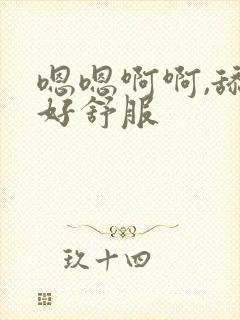 嗯嗯啊啊,舔
好舒服
玖十四